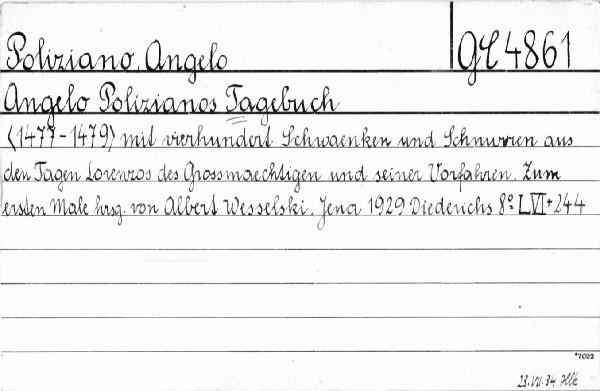 Poliziano, Angelo
GE 4861
Angelo Polizianos Tagebuch
(1477-1479) mit vierhundert Schwaenken und Schnurren aus
den Tagen Lorenzos des Grossmaechtigen und seiner Vorfahren. Zum
ersten Male hrsg. von Albert Wesselski. Jena 1929 Diederichs 8° LVI+244
*7022
23.VII.34